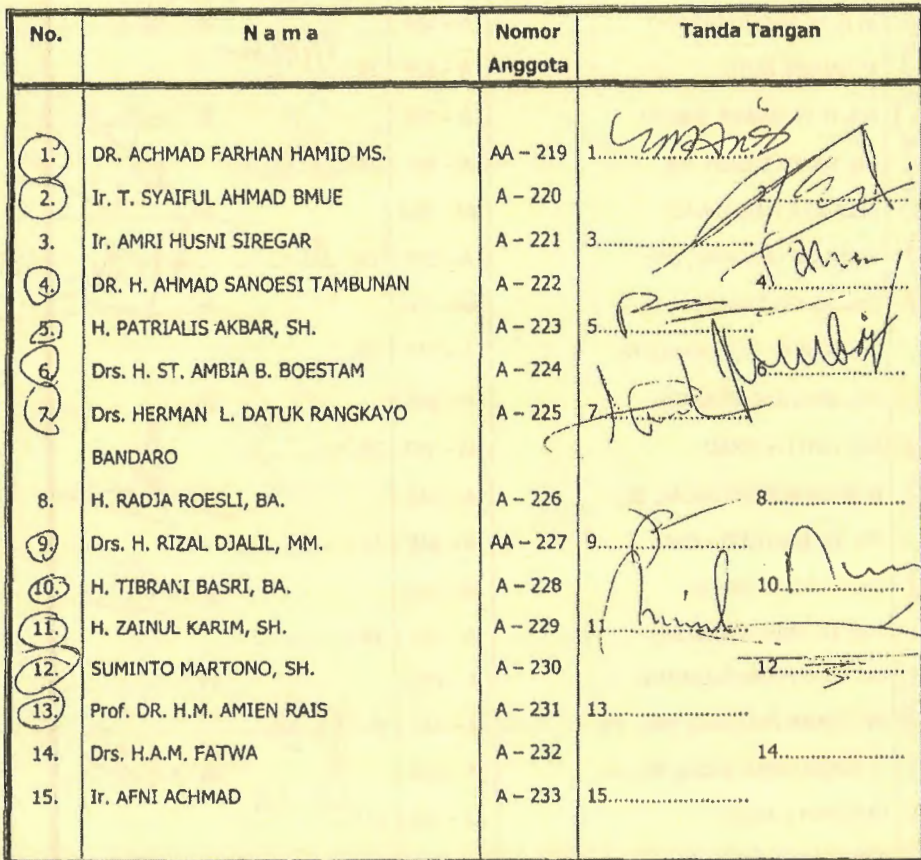 No. Nama Nomor Anggota Tanda Tangan
1. DR. ACHMAD FARHAN HAMID MS. AA – 219 1....................
2. Ir. T. SYAIFUL AHMAD BMUE A – 220 2....................
3. Ir. AMRI HUSNI SIREGAR A – 221 3....................
4. DR. H. AHMAD SANOESI TAMBUNAN A – 222 4....................
5. H. PATRIALIS AKBAR, SH. A – 223 5....................
6. Drs. H. ST. AMBIA B. BOESTAM A – 224
7. Drs. HERMAN L. DATUK RANGKAYO A – 225 7....................
BANDARO
8. H. RADJA ROESLI, BA. A – 226 8....................
9. Drs. H. RIZAL DJALIL, MM. AA – 227 9....................
10. H. TIBRANI BASRI, BA. A – 228 10....................
11. H. ZAINUL KARIM, SH. A – 229 11....................
12. SUMINTO MARTONO, SH. A – 230 12....................
13. Prof. DR. H.M. AMIEN RAIS A – 231 13....................
14. Drs. H.A.M. FATWA A – 232 14....................
15. Ir. AFNI ACHMAD A – 233 15....................